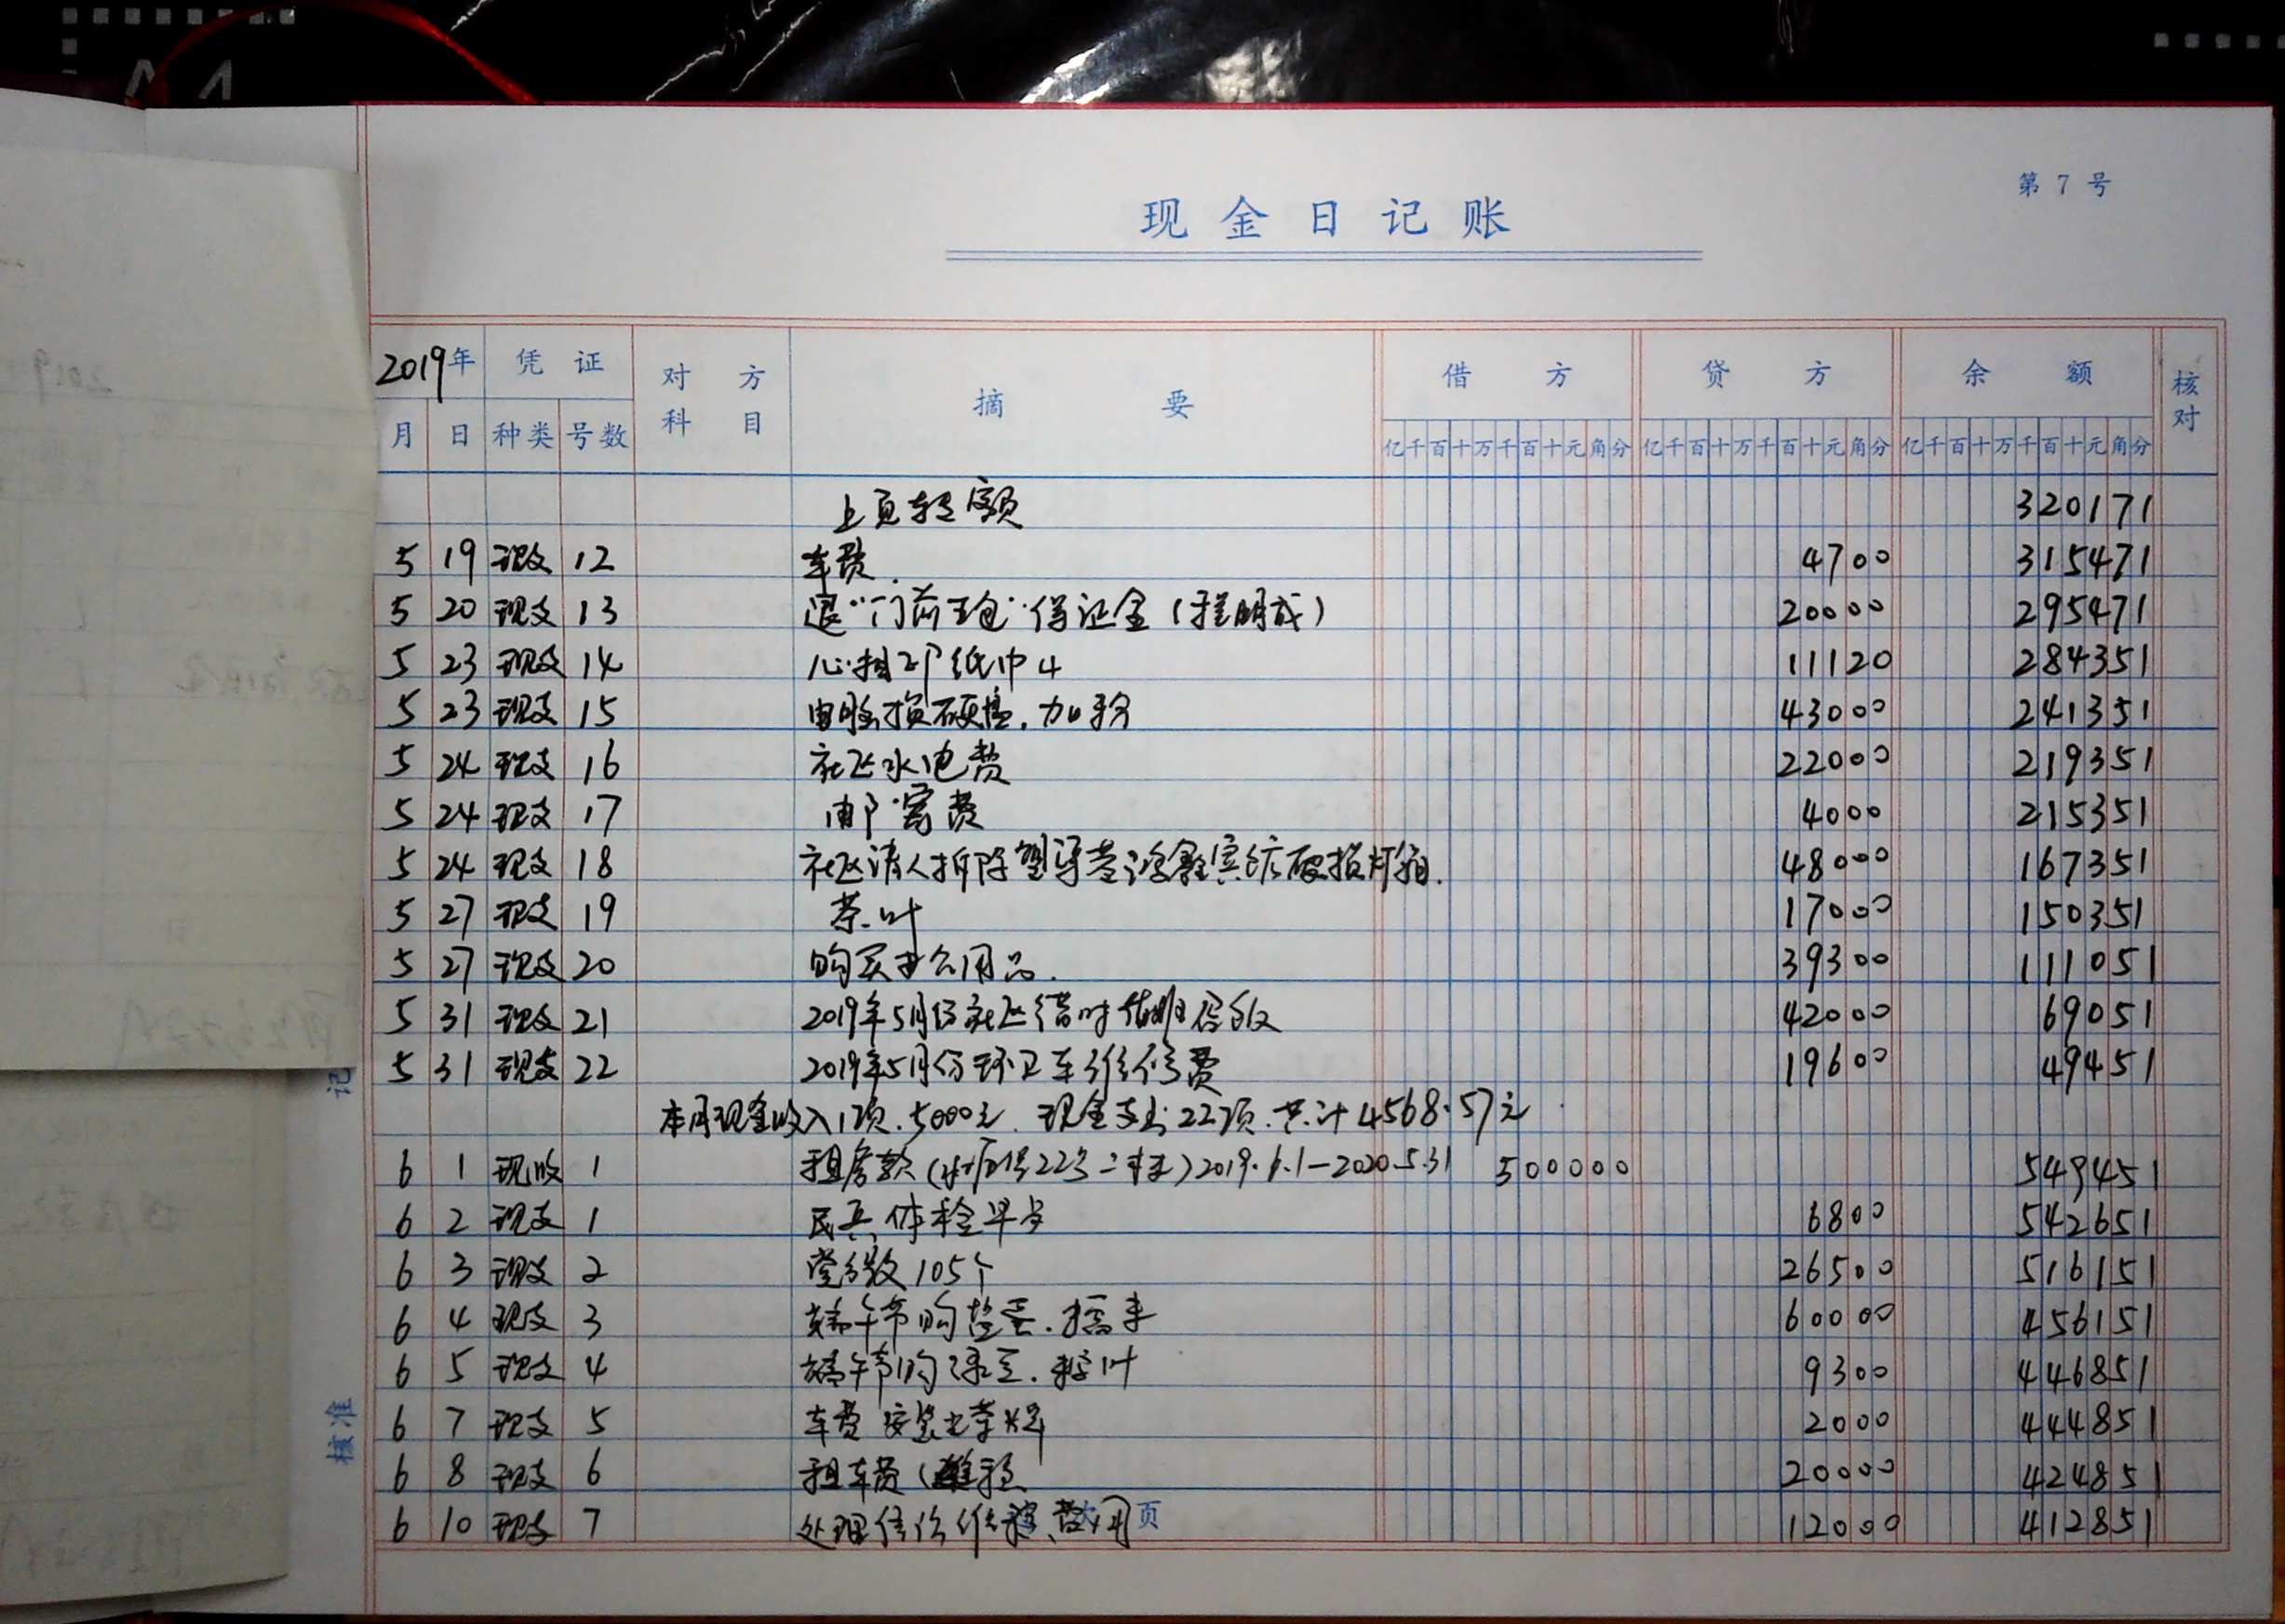 第 7 号
现 金 日 记 账
2019年 凭 证 对 方 科 目 摘 要 借 方 贷 方 余 额 核对
月 日 种类 号数 亿千百十万千百十元角分 亿千百十万千百十元角分 亿千百十万千百十元角分
上页转额 320171
5 19 现支 12 车费 4700 315471
5 20 现支 13 退"门前三包"保证金(程明成) 20000 295471
5 23 现支 14 心相印纸巾4 11120 284351
5 23 现支 15 电脑损硬盘.加粉 43000 241351
5 24 现支 16 社区水电费 22000 219351
5 24 现支 17 邮寄费 4000 215351
5 24 现支 18 社区请人拆除 宾馆破损灯箱. 48000 167351
5 27 现支 19 茶叶 17000 150351
5 27 现支 20 购买办公用品. 39300 111051
5 31 现支 21 2019年5月份社区错时 42000 69051
5 31 现支 22 2019年5月份环卫车维修费 19600 49451
本月现金收入1项.5000元.现金支出22项.共计4568.57元
6 1 现收 1 租房款( 22号二楼)2019.6.1—2020.5.31 500000 549451
6 2 现支 1 民兵体检早歺 6800 542651
6 3 现支 2 105个 26500 516151
6 4 现支 3 端午节购盐蛋.糯米 60000 456151
6 5 现支 4 端午节购绿豆.粽叶 9300 446851
6 7 现支 5 车费 安装光荣牌 2000 444851
6 8 现支 6 租车费( 20000 424851
6 10 现支 7 处理信访维稳费用 页 12000 412851
记
核准